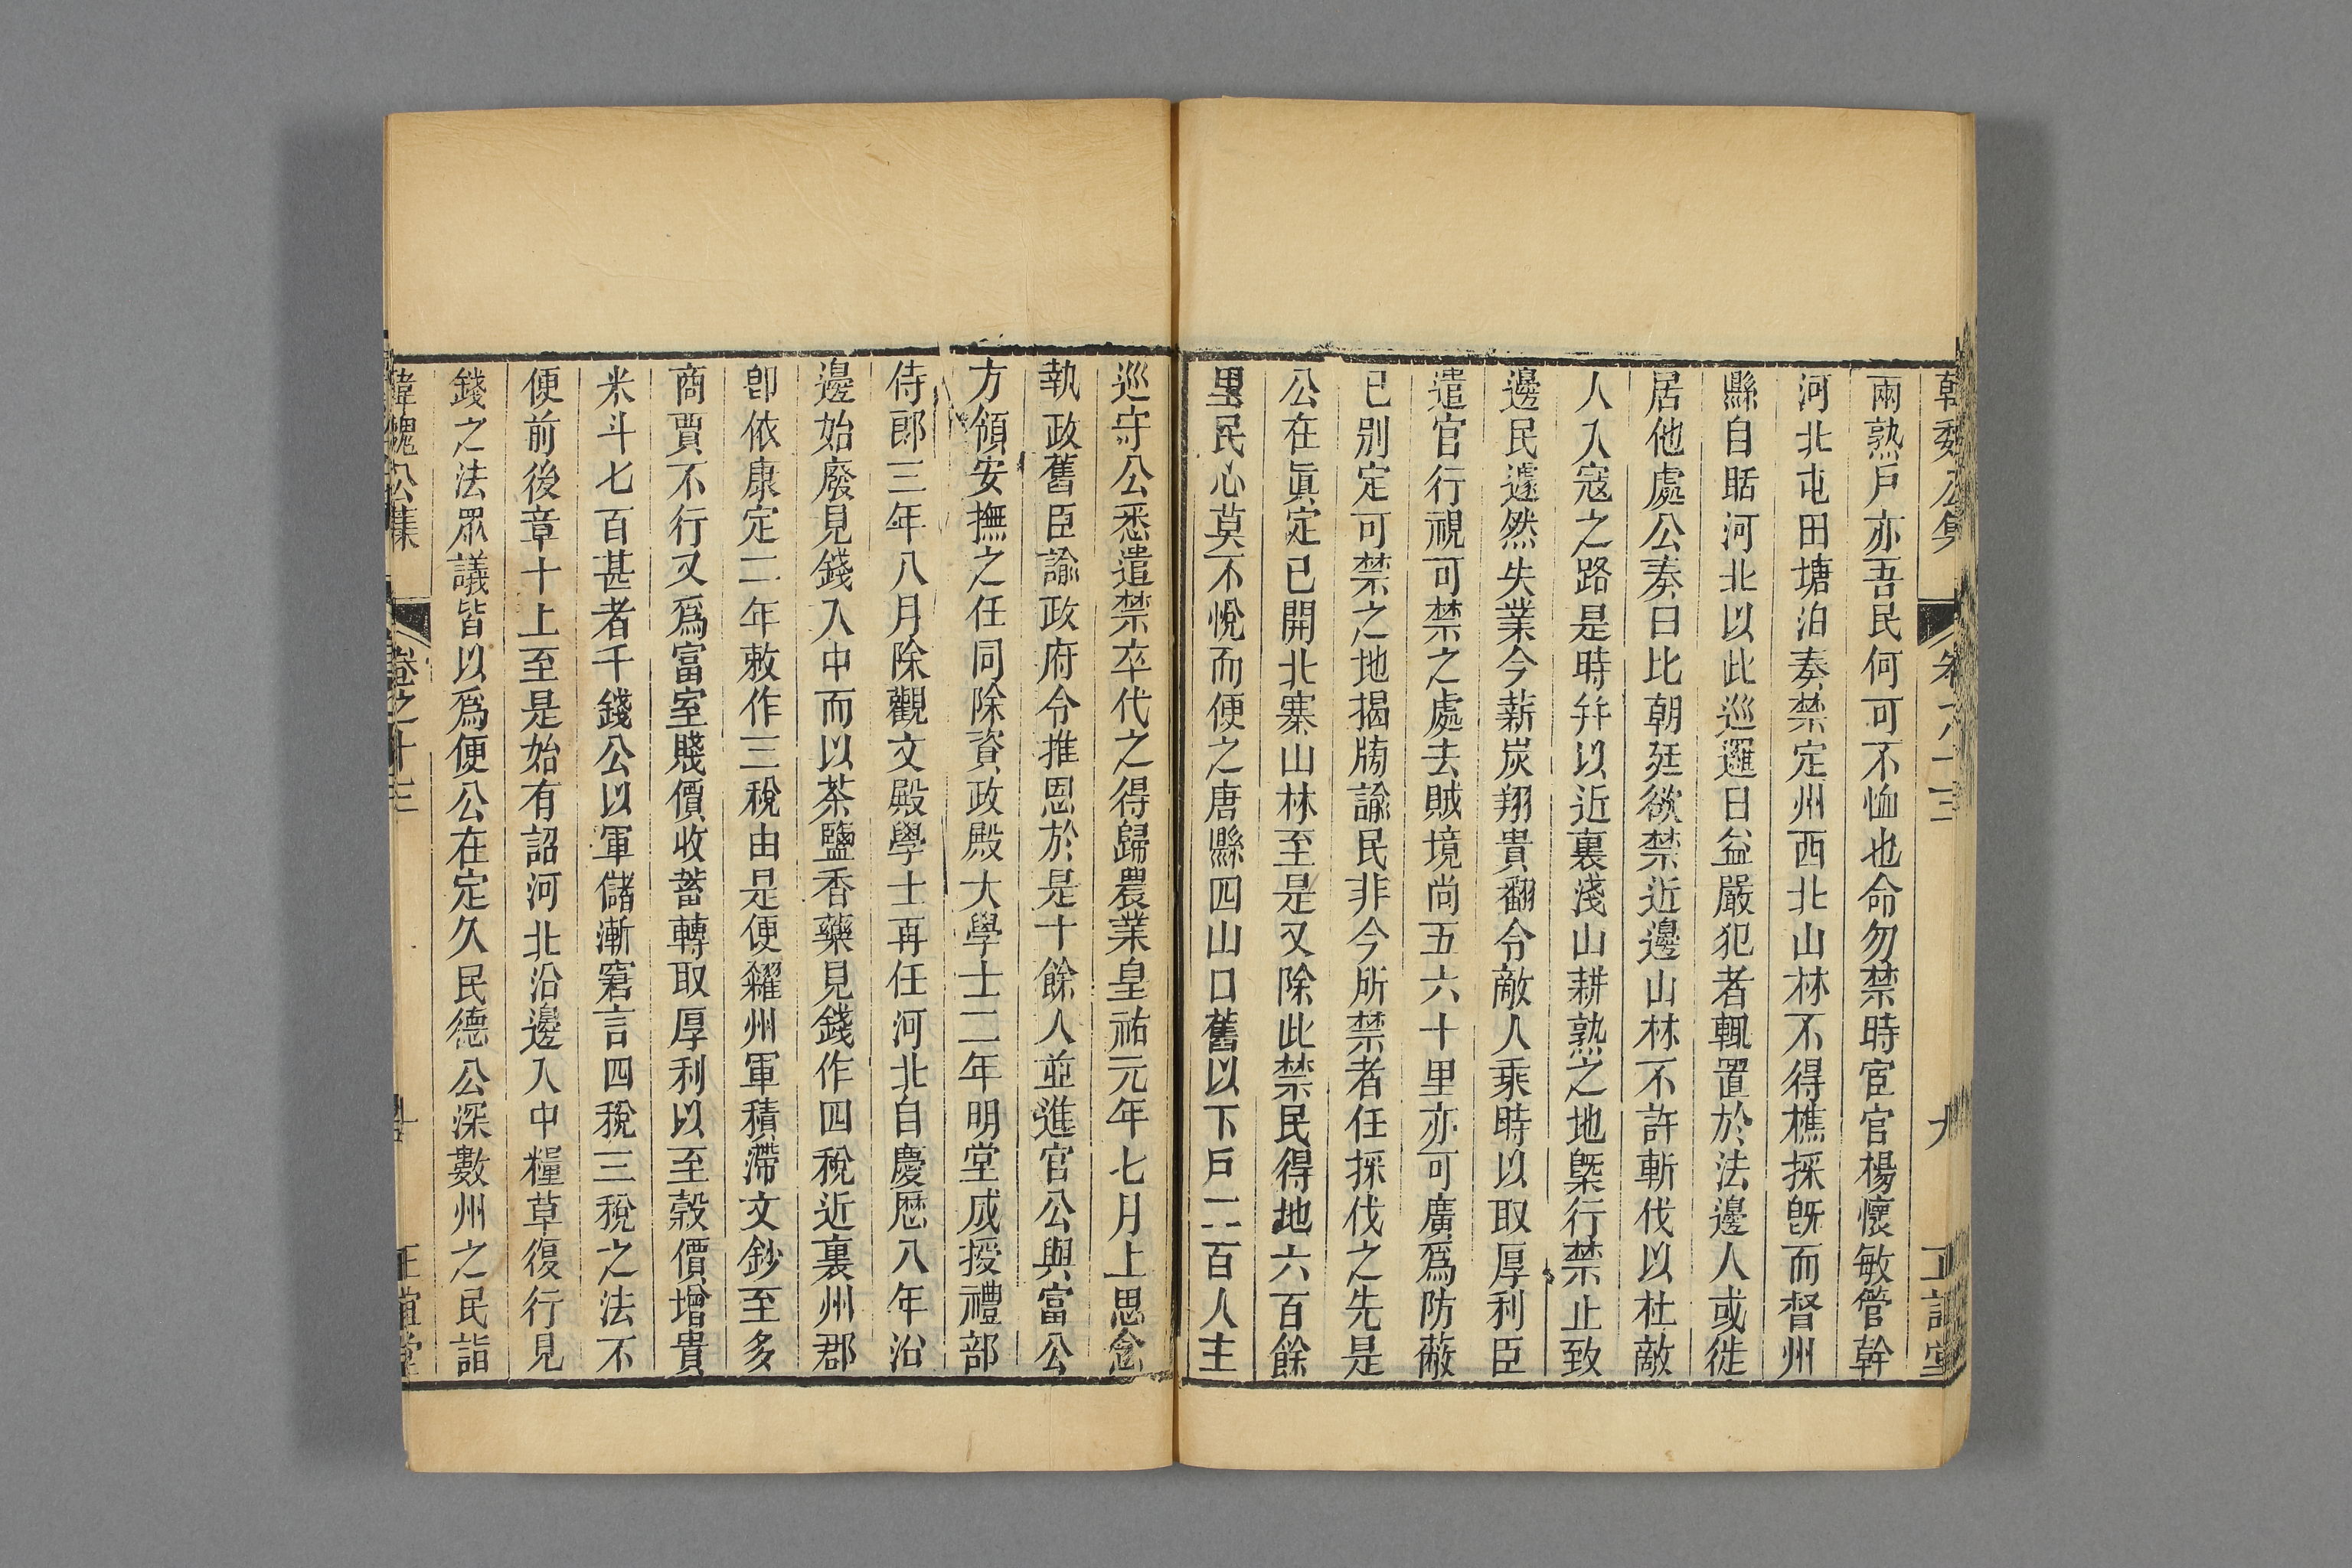 韓魏公集 卷之十三 九 正誼堂
兩熟戶亦吾民何可不恤也命勿禁時宦官楊懷敏管幹
河北屯田塘泊奏禁定州西北山林不得樵採旣而督州
縣自聒河北以此巡邏日益嚴犯者輒置於法邊人或徙
居他處公奏曰比朝廷欲禁近邊山林不許斬伐以杜敵
人入寇之路是時幷以近裏淺山耕熟之地槩行禁止致
邊民遽然失業今薪炭翔貴翻令敵人乘時以取厚利臣
遣官行視可禁之處去賊境尚五六十里亦可廣爲防蔽
已別定可禁之地揭牓諭民非今所禁者任採伐之先是
公在眞定已開北寨山林至是又除此禁民得地六百餘
里民心莫不悅而便之唐縣四山口舊以下戶一二百人主
巡守公悉遣禁卒代之得歸農業皇祐元年七月上思念
執政舊臣諭政府令推恩於是十餘人並進官公與富公
方領安撫之任同除資政殿大學士二年明堂成授禮部
侍郎三年八月除觀文殿學士再任河北自慶曆八年沿
邊始廢見錢入中而以茶鹽香藥見錢作四稅近裏州郡
卽依康定二年敕作三稅由是便糴州軍積滯文鈔至多
商賈不行又爲富室賤價收蓄轉取厚利以至穀價增貴
米斗七百甚者千錢公以軍儲漸窘言四稅三稅之法不
便前後章十上至是始有詔河北沿邊入中糧草復行見
錢之法眾議皆以爲便公在定久民德公深數州之民詣
韓魏公集 卷之十三 正誼堂